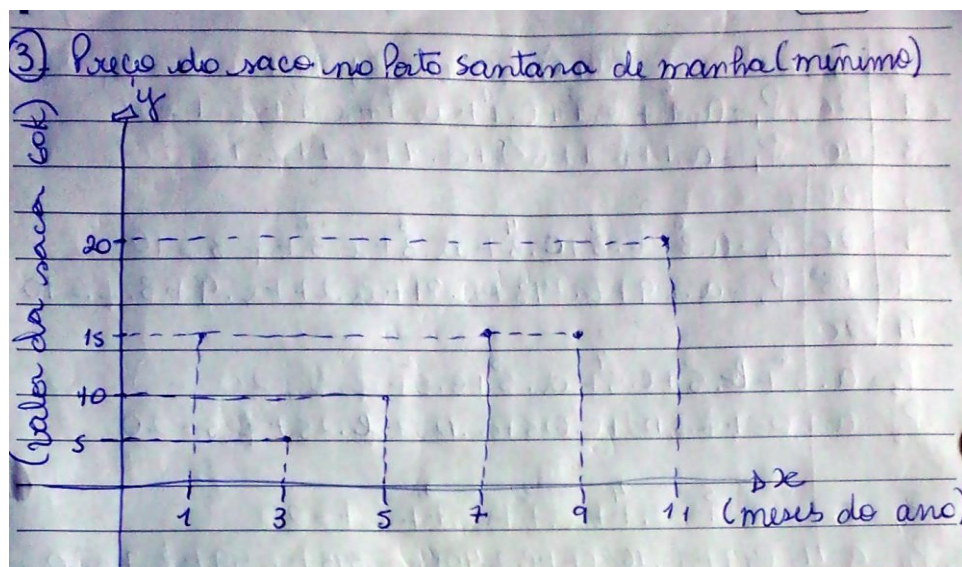 3) Preço do saco no Porto Santana de manhã (mínimo)
y
(Valor da saca 60k)
20
15
10
5
x
1 3 5 7 9 11 (meses do ano)